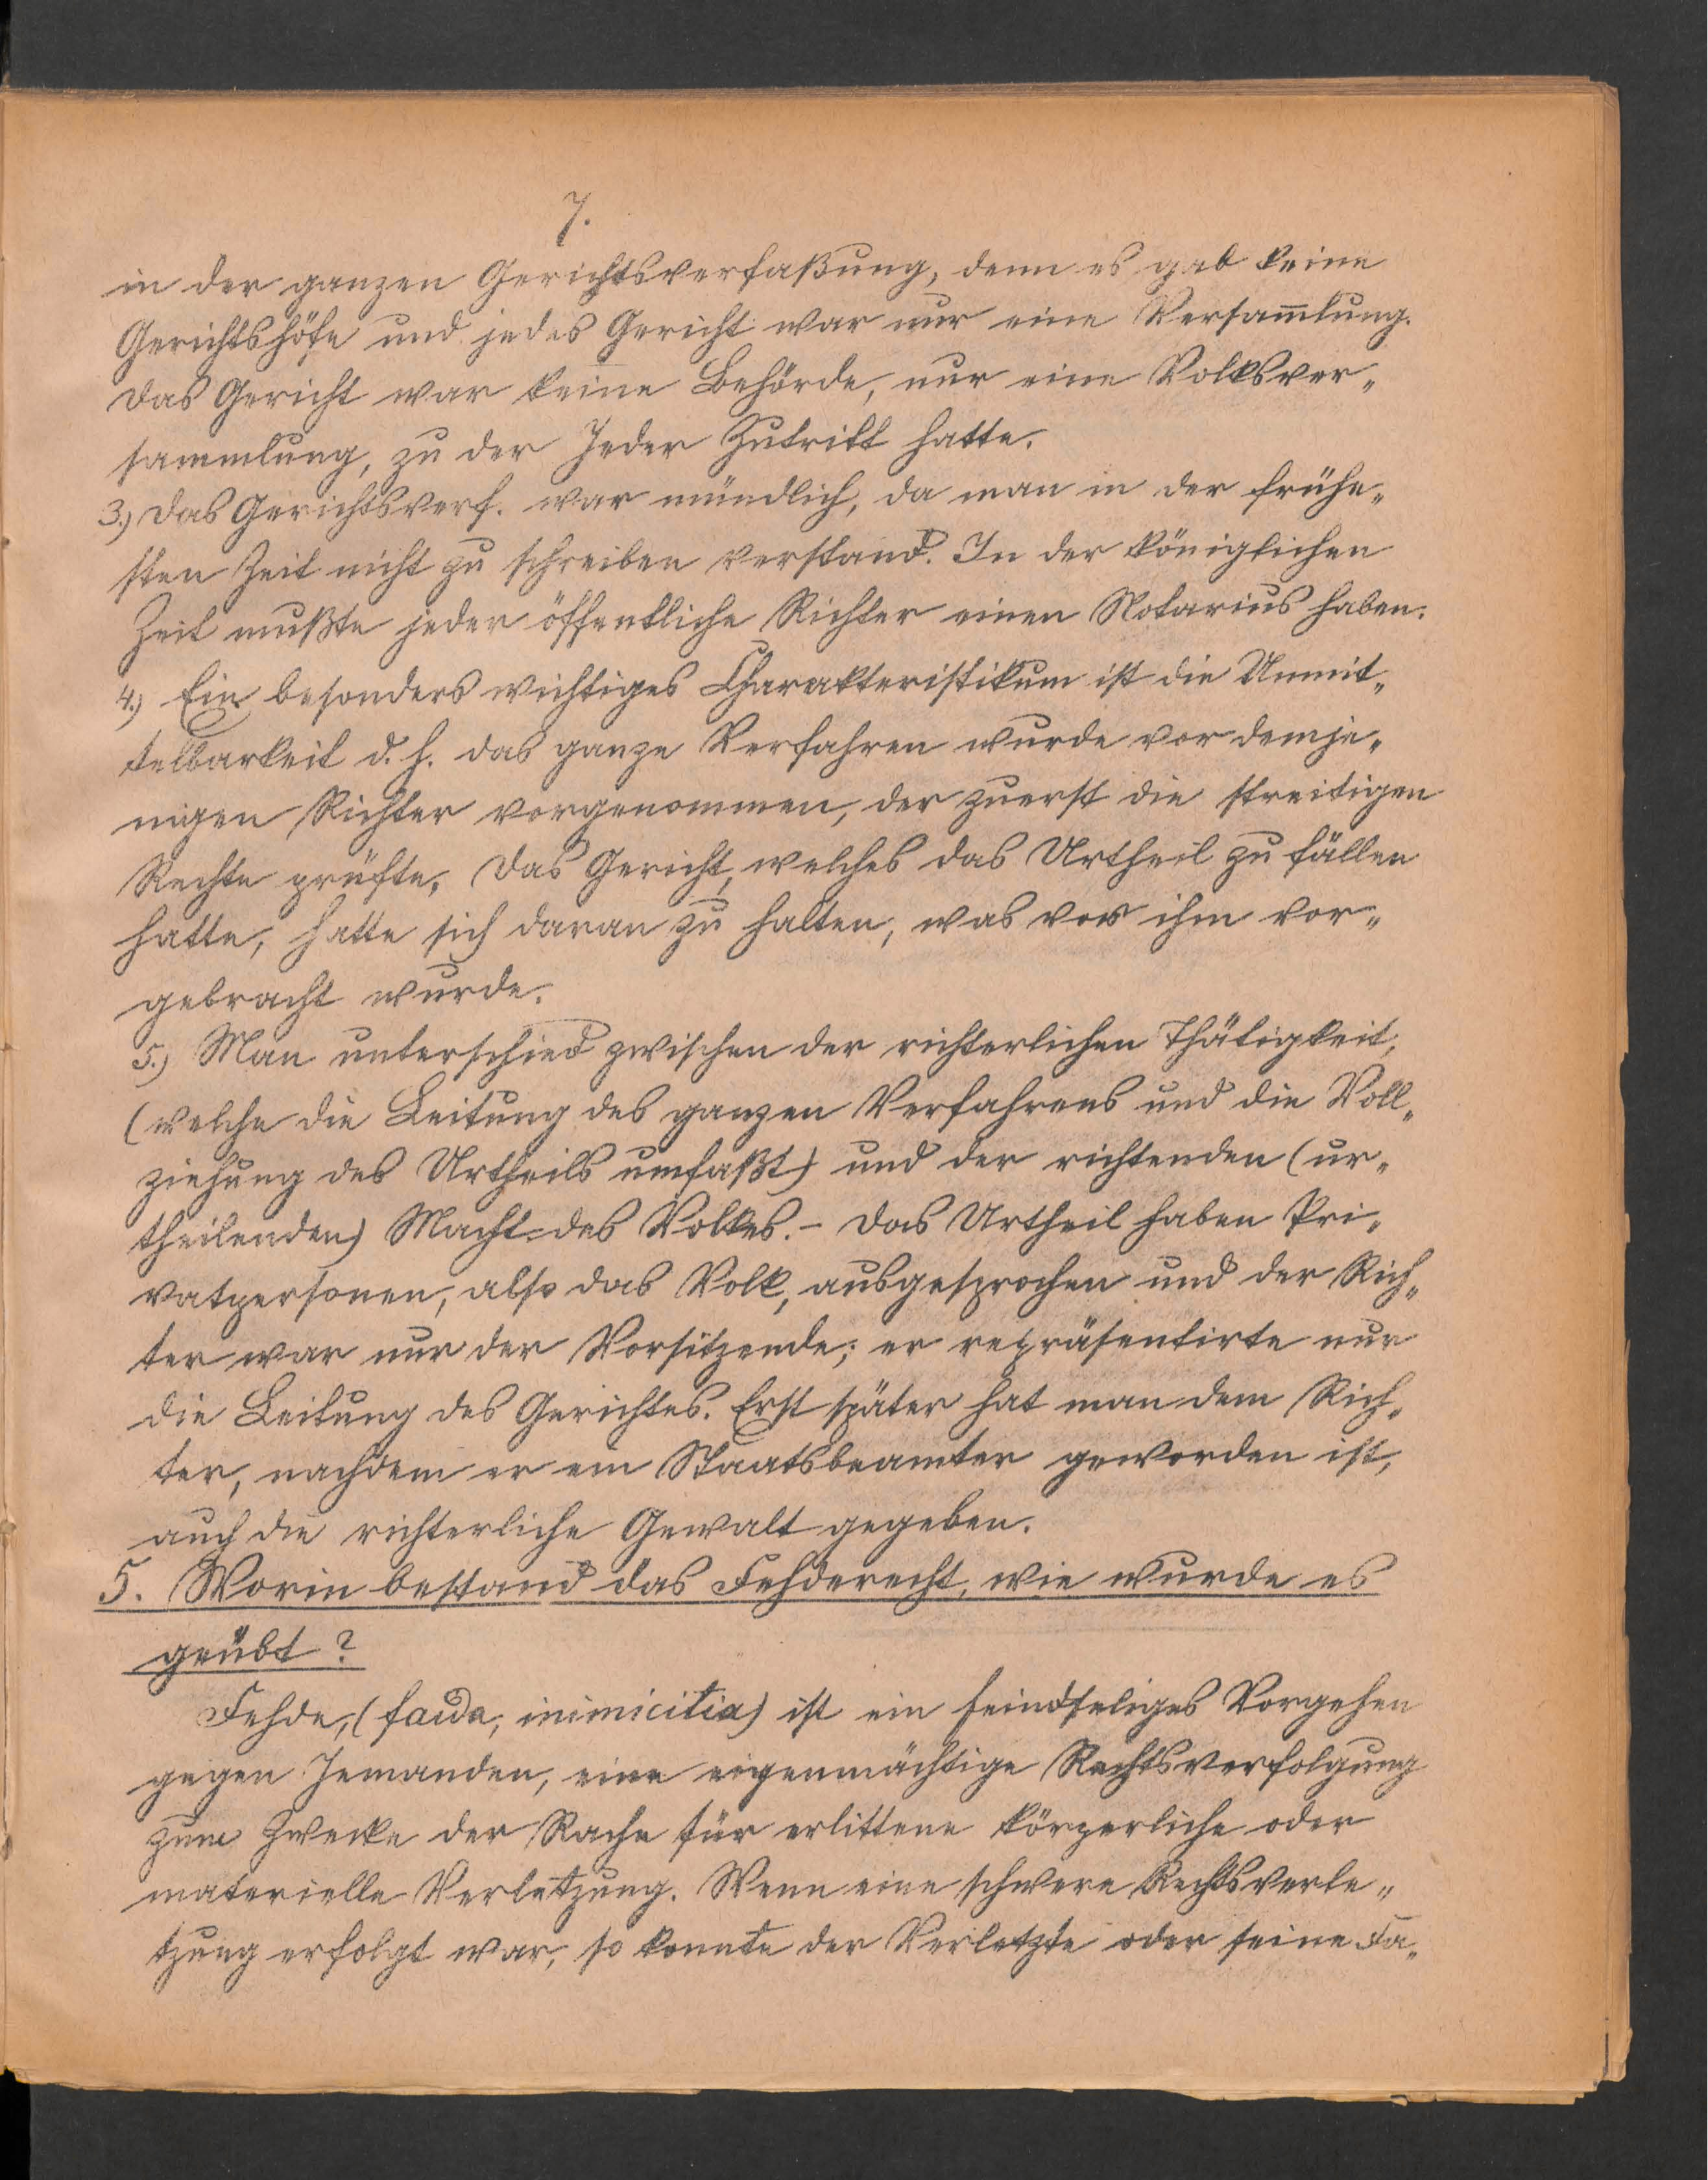 7.
in der ganzen Gerichtsverfaßung, denn es gab keine
Gerichtshöfe und jedes Gericht war nur eine Versam̅lung.
Das Gericht war keine Behörde, nur eine Volksver„
sammlung, zu der Jeder Zutritt hatte.
3.) Das Gerichtsverf. war mündlich, da man in der frühe„
sten Zeit nicht zu schreiben verstand. In der königlichen
Zeit mußte jeder öffentliche Richter einen Notarius haben.
4.) Ein besonders wichtiges Charakteristikum ist die Unmit„
telbarkeit d. h. das ganze Verfahren wurde vor demje„
nigen Richter vorgenommen, der zuerst die streitigen
Rechte prüfte. Das Gericht, welches das Urtheil zu fällen
hatte, hatte sich daran zu halten, was vor ihm vor„
gebracht wurde.
5.) Man unterschied zwischen der richterlichen Thätigkeit,
(welche die Leitung des ganzen Verfahrens und die Voll„
ziehung des Urtheils umfaßt) und der richtenden (ur„
theilenden) Macht des Volkes. – Das Urtheil haben Pri„
vatpersonen, also das Volk, ausgesprochen und der Rich„
ter war nur der Vorsitzende; er repräsentirte nur
die Leitung des Gerichtes. Erst später hat man dem Rich„
ter, nachdem er ein Staatsbeamter geworden ist,
auch die richterliche Gewalt gegeben.
5. Worin bestand das Fehderecht, wie wurde es
geübt?
Fehde, (faida, inimicitia) ist ein feindseliges Vorgehen
gegen Jemanden, eine eigenmächtige Rechtsverfolgung
zum Zwecke der Rache für erlittene körperliche oder
materielle Verletzung. Wenn eine schwere Rechtsverle„
tzung erfolgt war, so konnte der Verletzte oder seine Fa„